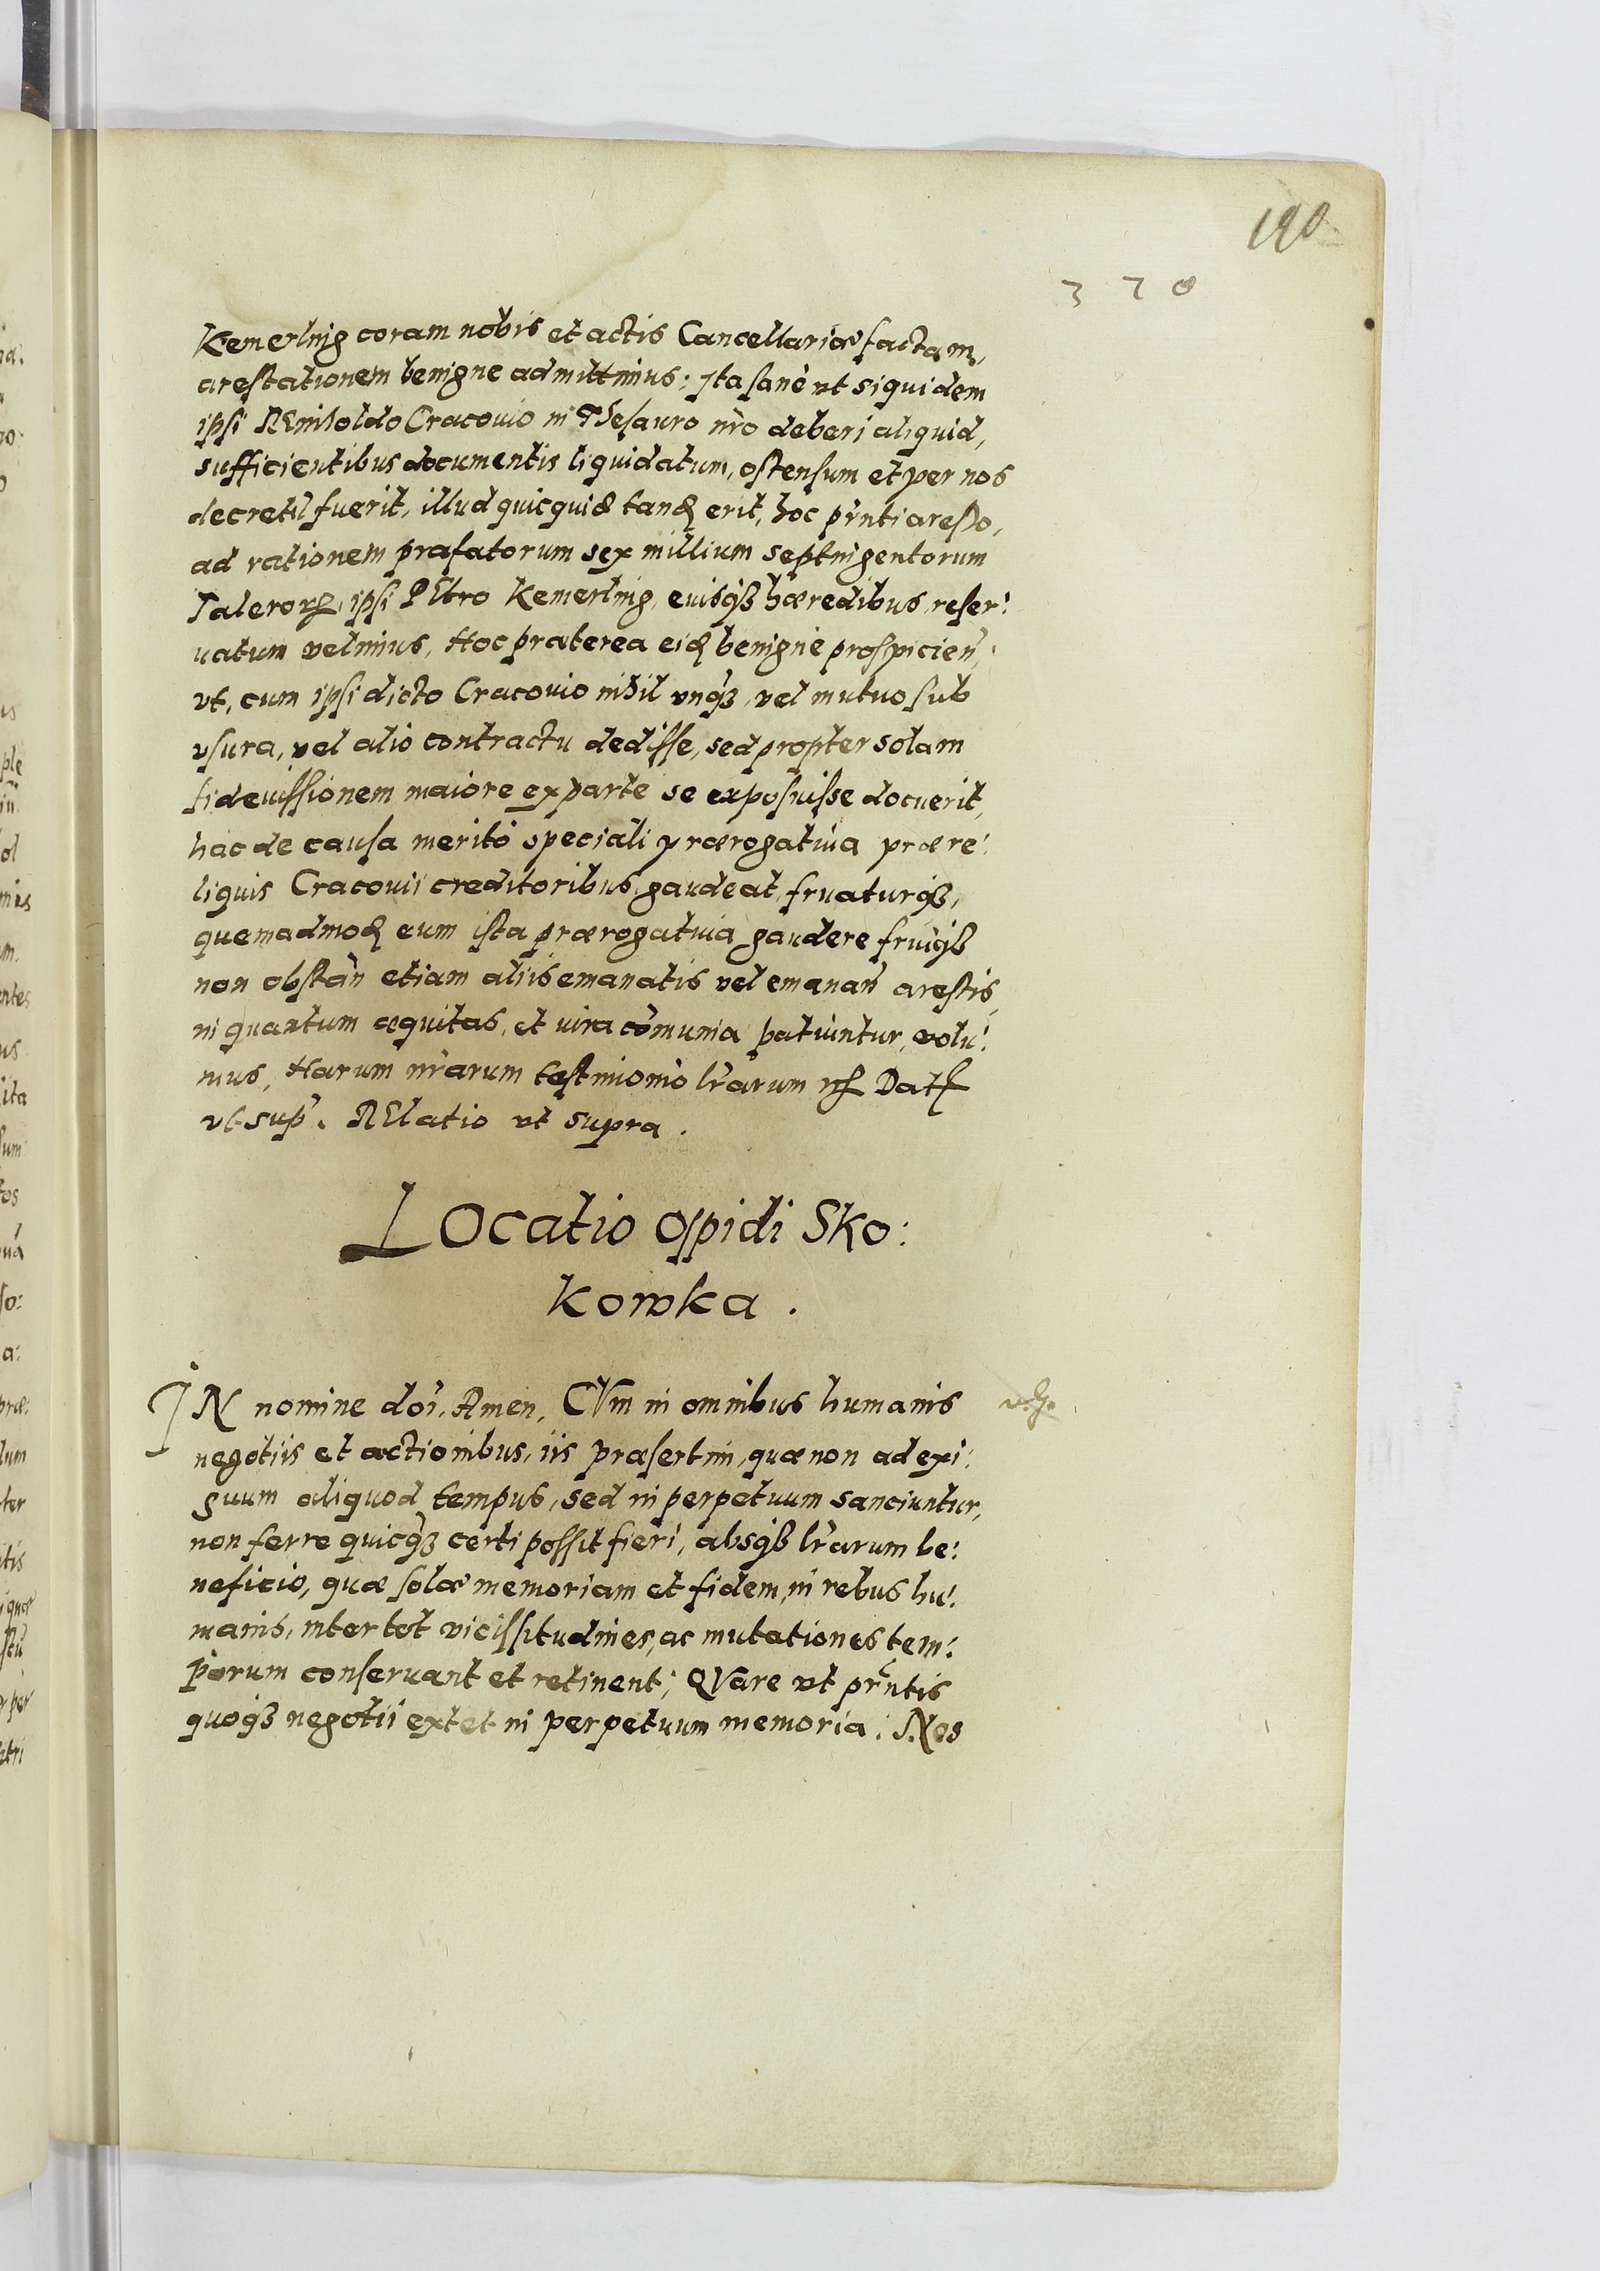 190.
370
Kemerlnig coram nobis et actis Cancellariæ factam,
arestationem benigne admittimus; Ita sanè vt siquidem
ipsi REinholdo Cracouio in Thesauro nr̃o deberi aliquid,
sufficientibus documentis liquidatum, ostensum et per nos
decretũ fuerit, illud quicquid tandẽ erit, hoc pr̃nti aresto,
ad rationem præfatorum sex millium septingentorum
Talerorũ, ipsi PEtro Kemerling, euisq̃ hæredibus, reser:
uatum velimus, Hoc præterea eidẽ benignè prospicieñ,
vt, cum ipsi dicto Cracouio nihil vnq̃, vel mutuo sub
vsura, vel alio contractu dedisse, sed propter solam
fideiussionem maiore ex parte se exposuisse docuerit,
hac de causa meritò speciali prærogatiua præ re:
liquis Cracouii creditoribus, gaudeat fruaturq̃,
quemadmodũ eum ista prærogatiua gaudere fruiq̃
non obstañ etiam aliis emanatis vel emanañ arestis,
in quantum æquitas, et iura cõmunia patiuntur, volu:
mus, Harum nr̃arum testimonio lr̃arum
vt sup̃. RElatio vt supra.
LOcatio Opidi Sko:
kowka.
IN nomine doĩ, Amen, CVm in omnibus humanis
negotiis et actionibus, iis præsertim, quæ non ad exi:
guum aliquod tempus, sed in perpetuum sanciuntur,
non ferre quicq̃ certi possit fieri, absq̃ lr̃arum be:
neficio, quæ solæ memoriam et fidem, in rebus hu:
manis, inter tot vicissitudines, ac mutationes tem:
porum conseruant et retinent; QVare vt pr̃ntis
quoq̃ negotii extet in perpetuum memoria: Nos